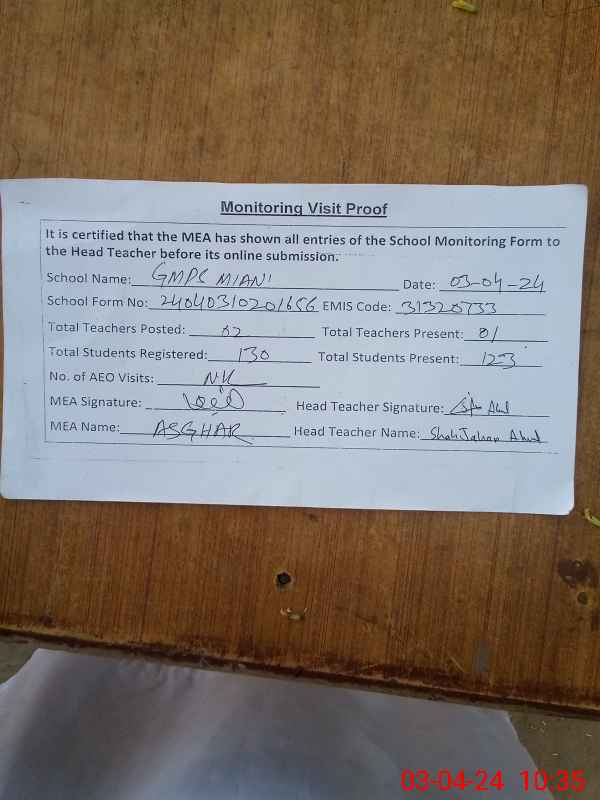 Monitoring Visit Proof
It is certified that the MEA has shown all entries of the School Monitoring Form to
the Head Teacher before its online submission.
School Name: GMPS MIANI Date: 03-04-24
School Form No: 24040310201656 EMIS Code: 31320733
Total Teachers Posted: 02 Total Teachers Present: 01
Total Students Registered: 130 Total Students Present: 123
No. of AEO Visits: Nil
MEA Signature: Head Teacher Signature:
MEA Name: ASGHAR Head Teacher Name: Shah Jahan
03-04-24 10:35